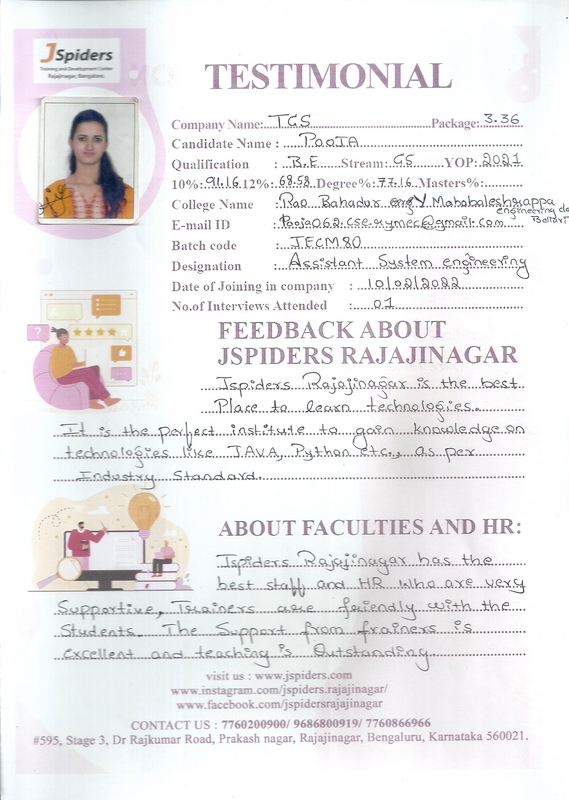 JSpiders
Training and Development Center
Rajajinagar, Bangalore.
TESTIMONIAL
Company Name: TCS Package: 3.36
Candidate Name : POOJA
Qualification : B.E Stream: CS YOP: 2021
10%: 91.16 12%: 68.58 Degree%: 77.16 Masters%:
College Name : Rao Bahadur Y Mahabaleshwarappa
engineering
Ballari
E-mail ID : Pooja062.cse.rymec@gmail.com
Batch code : JECM80
Designation : Assistant System engineering
Date of Joining in company : 10/02/2022
No.of Interviews Attended : 01
FEEDBACK ABOUT
JSPIDERS RAJAJINAGAR
Jspiders Rajajinagar is the best
Place to learn technologies.
It is the perfect institute to gain knowledge on
technologies like JAVA, Python etc., as per
Industry Standard.
ABOUT FACULTIES AND HR:
Jspiders Rajajinagar has the
best staff and HR who are very
Supportive, Trainers are friendly with the
Students. The Support from trainers is
excellent and teaching is Outstanding
visit us : www.jspiders.com
www.instagram.com/jspiders.rajajinagar/
www.facebook.com/jspidersrajajinagar
CONTACT US : 7760200900/ 9686800919/ 7760866966
#595, Stage 3, Dr Rajkumar Road, Prakash nagar, Rajajinagar, Bengaluru, Karnataka 560021.